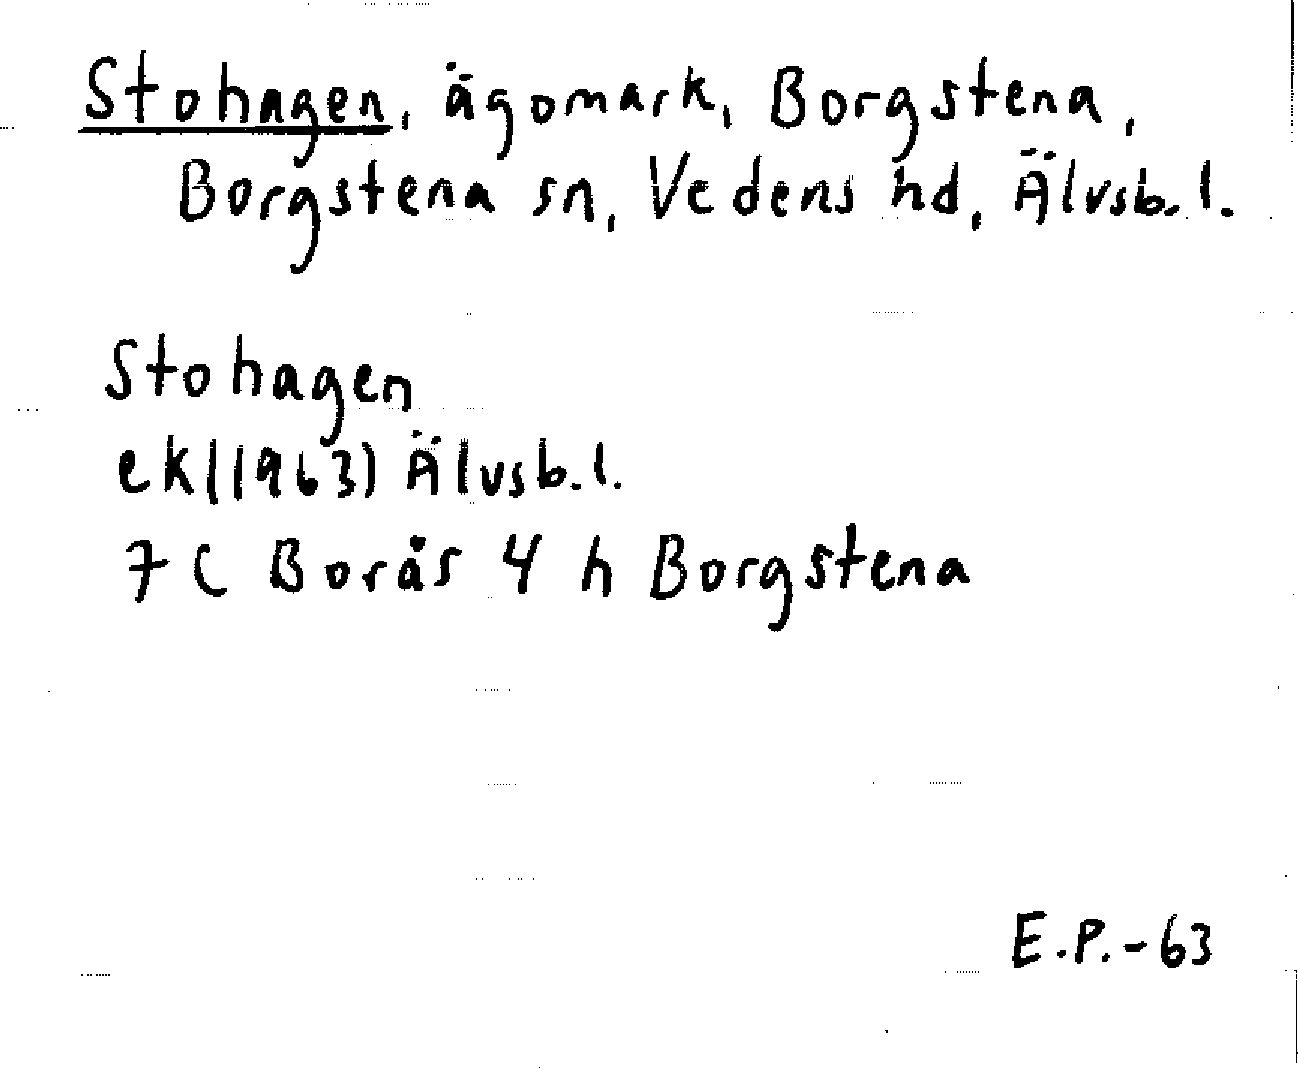 Stohagen, ägomark, Borgstena,
Borgstena sn, Vedens hd, Älvsb. l.
Stohagen
ek (1963) Älvsb. l.
7 C Borås 4 h Borgstena
E.P.-63